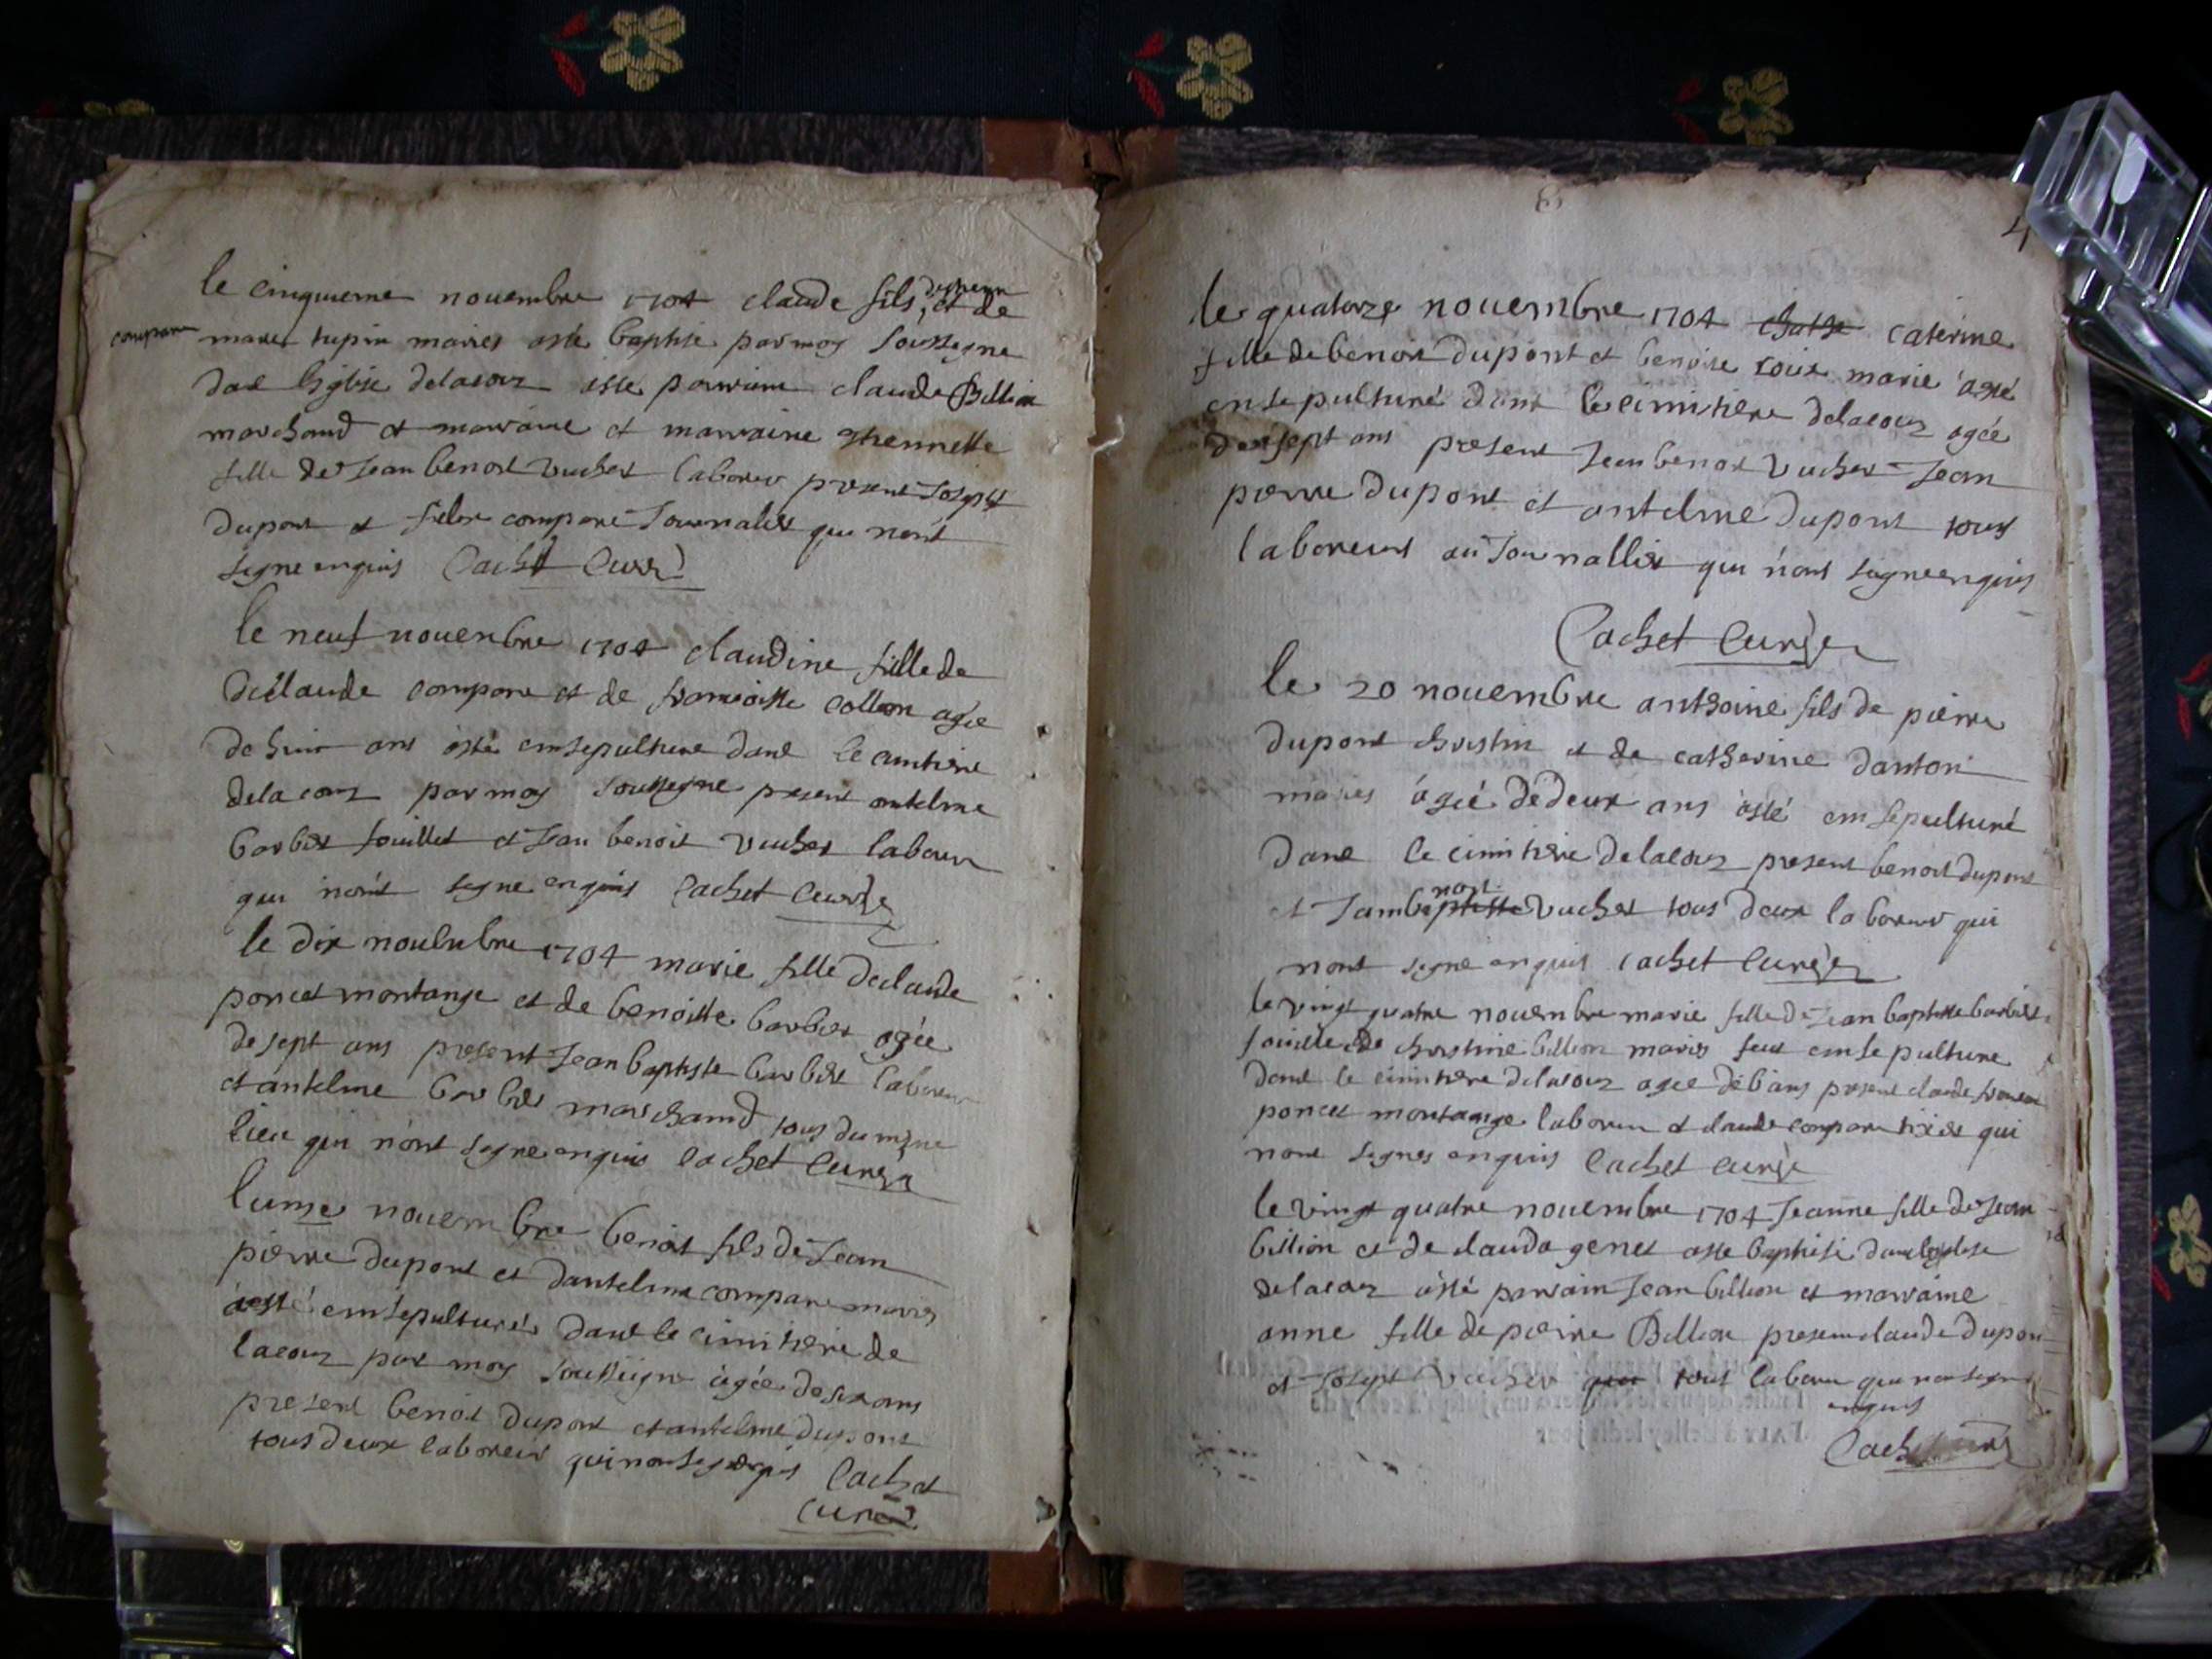 le cinquieme novembre 1704 claude fils, et de
compare
marie tupin maries asté baptisé par moy soussigne
dan leglise delacoux asté parrium claude Billion
marchand et marraine et marraine
fille de Jean benoit vucher laboreur present Joseph
dupont et compare Journalier qui nont
signe enquis Cachet Curé
le neuf novembre 1704 claudine fille de
declaude compare et de francoisse collion agée
de huit ans asté emsepulture dans le cimtiere
delacoux par moy soussigne present antelme
barbier fouillet et Jean benoit vucher laboreur
qui nont signe enquis Cachet Curé
le dix novenbre 1704 marie fille declaude
poncet montange et de benoitte barbier agée
de sept ans present Jean baptiste barbier laboreur
et antelme barbier marchamd tous du mesme
lieu qui nont signe enquis Cachet Curé
lunze novembre benoit fils de Jean
pierre dupont et dantelme compare maries
asté emsepulturé dans le cimitiere de
lacoux par moy soussigne agée de six ans
present benoit dupont et antelme dupont
tous deux laboreur qui non signe enquis Cachet
Curé
4
le quatorze novembre 1704 caterine
fille de benoit dupont et benoite roux marie asté
ensepulturé dans le cimitiere delacoux agée
de sept ans present Jean benoit vucher Jean
pierre dupont et antelme dupont tous
laboreurs au Journallier qui nont signe enquis
Cachet Curé
le 20 novembre anthoine fils de pierre
dupont christin et de catherine danton
maries agée de deux ans asté emsepulturé
dans le cimitiere delacoux present benoit dupont
noit
et Jambaptiste vucher tous deux laboreur qui
nont signe enquis Cachet Curé
le vingt quatre novembre marie fille de Jean baptiste barbier
fouille de christine billion maries feut emsepulture
dans le cimitiere delacoux agée de 6 ans present claude francois
poncet montange laboreur et claude compare tixier qui
nont signes enquis Cachet Curé
le vingt quatre novembre 1704 Jeanne fille de Jean
billion et de clauda genet asté baptisé dans leglise
delacoux asté parrain Jean billion et marraine
anne fille de pierre Billion present claude dupont
et Joseph vucher qui tous laboreur qui non signe
enquis
Cachet Curé